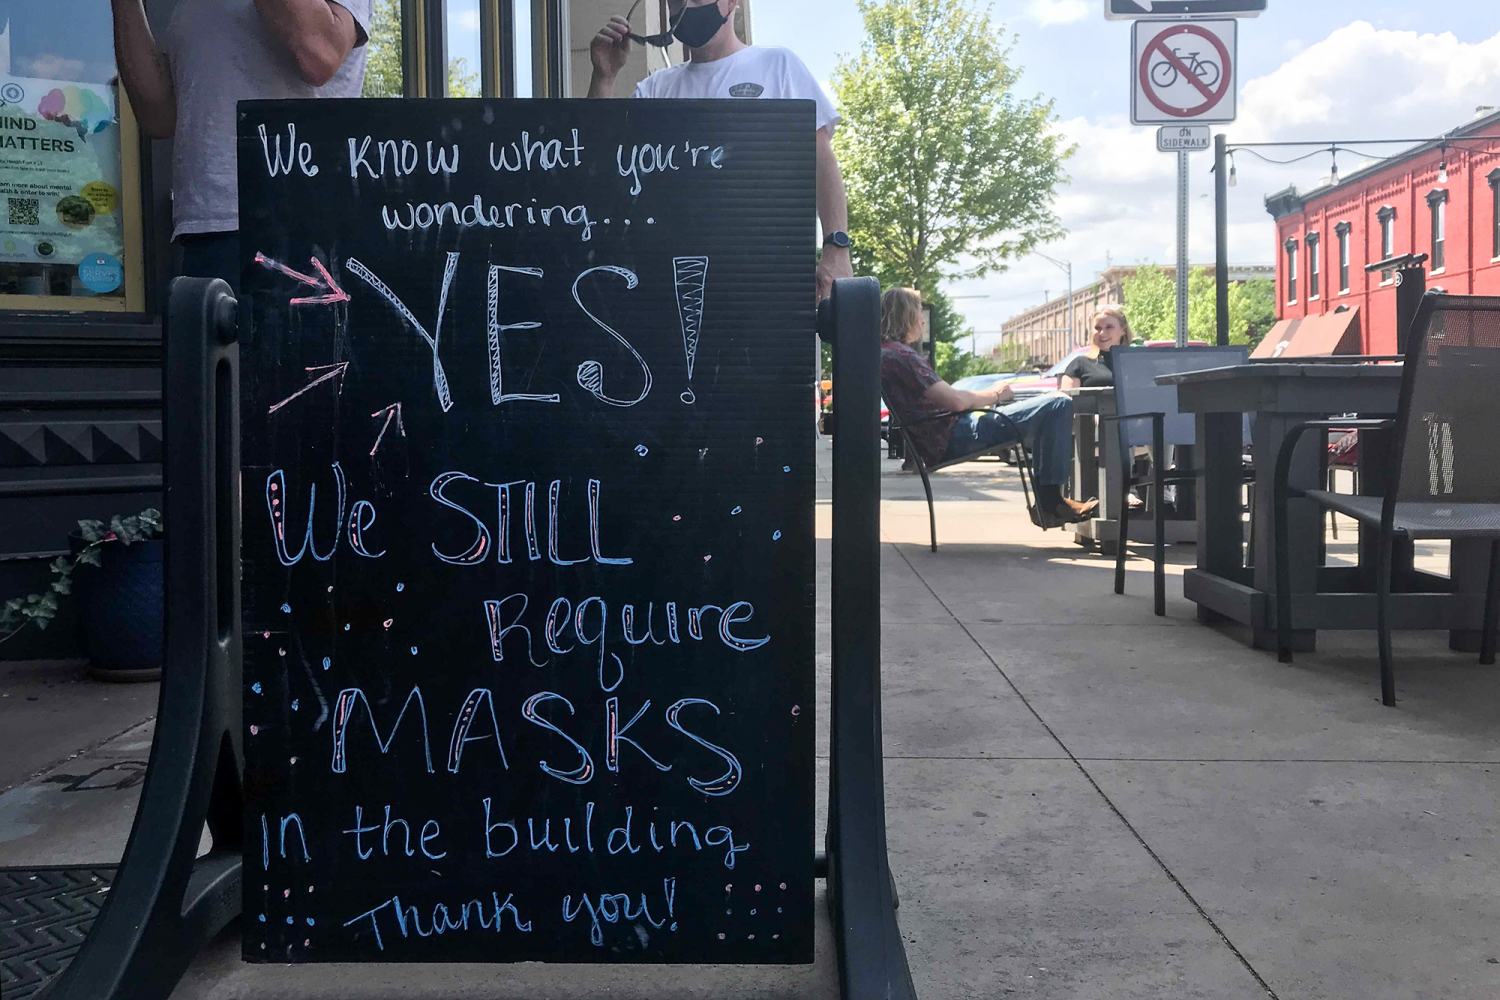 We know what you're
wondering...
YES!
We STILL
Require
MASKS
in the building
Thank you!
MIND
MATTERS
ON
SIDEWALK